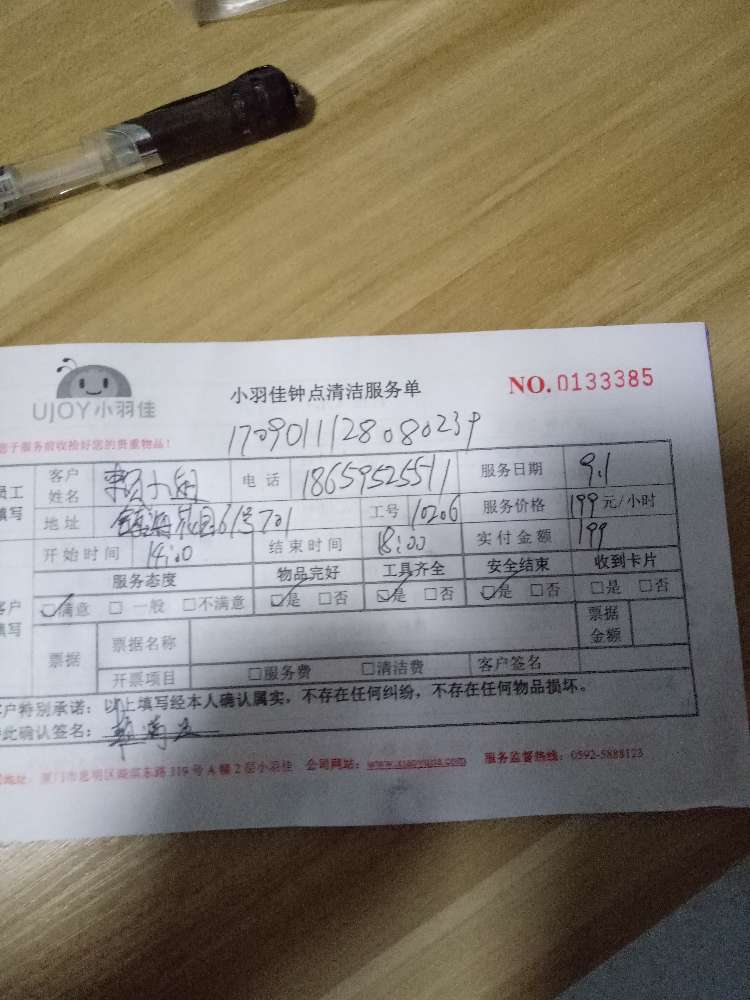 UJOY小羽佳
小羽佳钟点清洁服务单
NO.0133385
您于服务前收捡好您的贵重物品!
1709011128080239
员工填写
客户姓名 小姐 电话 18659525511 服务日期 9.1
地址 镇海花园61号701 工号 10206 服务价格 199元/小时
开始时间 14:00 结束时间 18:00 实付金额 199
服务态度 物品完好 工具齐全 安全结束 收到卡片
客户填写
☑满意 □一般 □不满意 ☑是 □否 ☑是 □否 ☑是 □否 □是 □否
票据 票据名称 票据金额
开票项目 □服务费 □清洁费 客户签名
客户特别承诺：以上填写经本人确认属实，不存在任何纠纷，不存在任何物品损坏。
特此确认签名：
地址：厦门市思明区 东路 319 号 A 幢 2 层小羽佳 公司网站：www.xiaoyujia.com 服务监督热线：0592-5888123